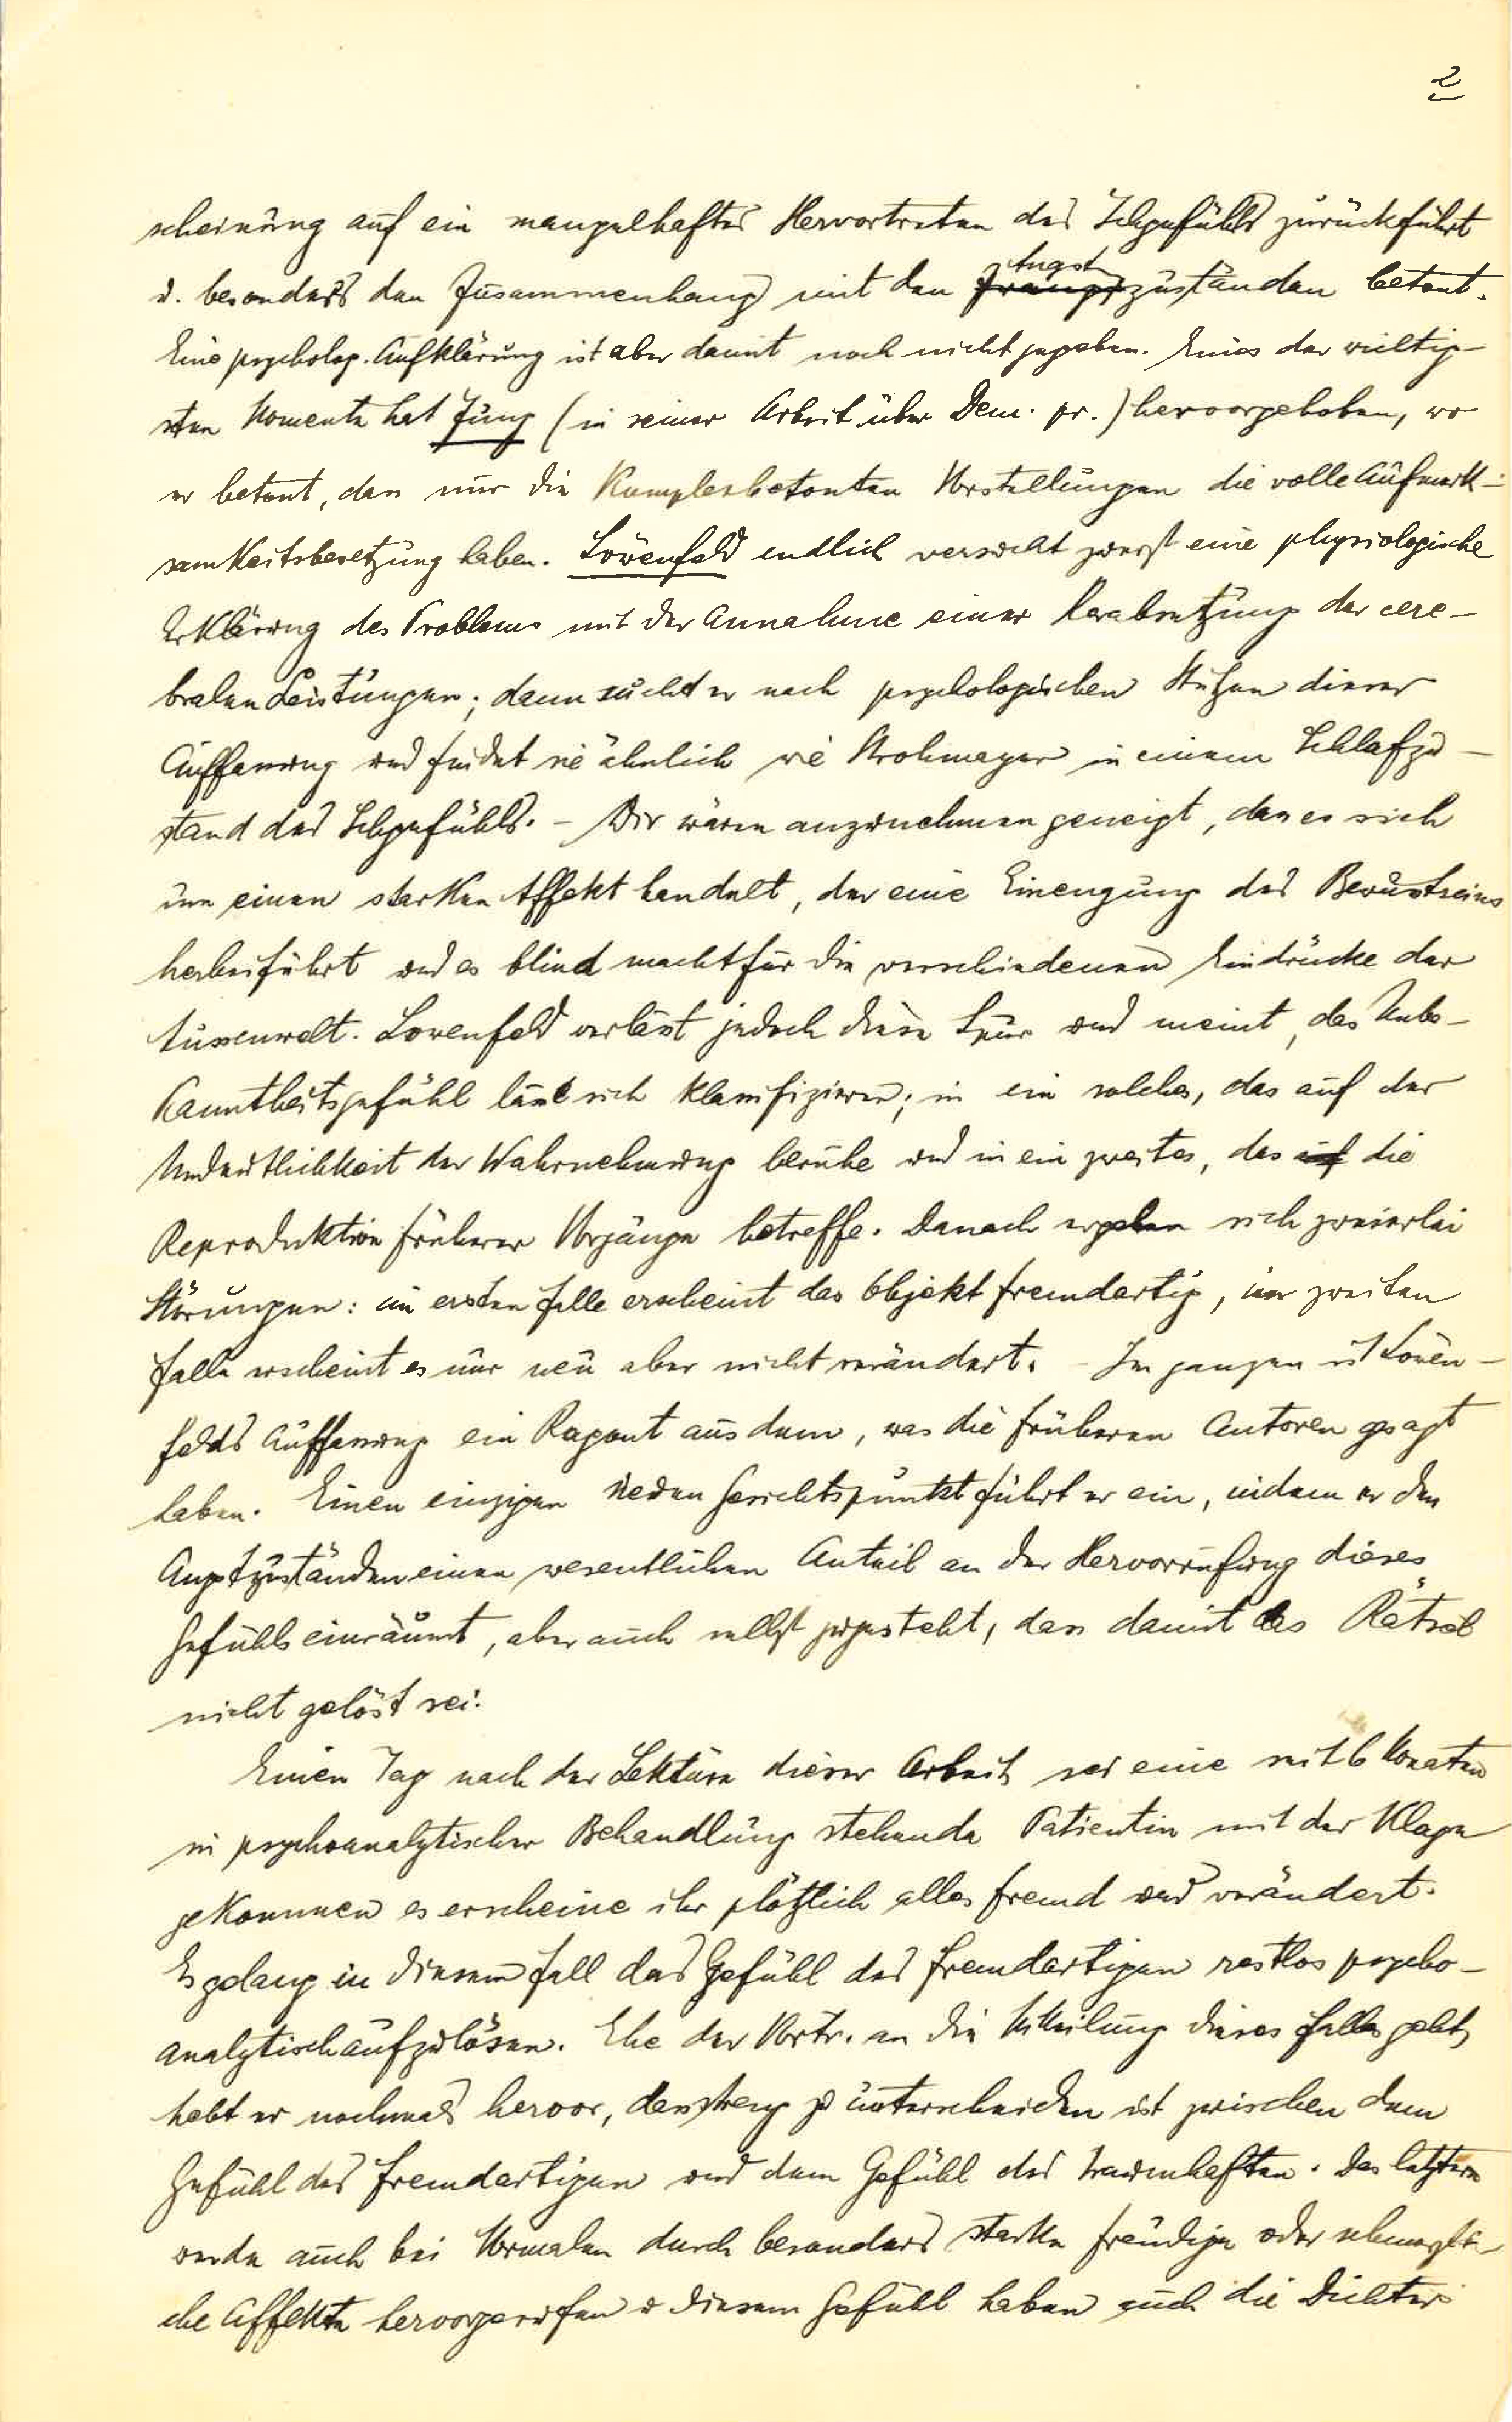 2
scheinung auf ein mangelhaftes Hervortreten des Ichgefühls zurückführt
u. besonders den Zusammenhang mit den Angstzuständen betont.
Eine psycholog. Aufklärung ist aber damit noch nicht gegeben. Eines der wichtig-
sten Momente hat Jung (in seiner Arbeit über Dem. pr.) hervorgehoben, wo
er betont, dass nur die Komplexbetonten Vorstellungen die volle Aufmerk-
samkeitsbesetzung haben. Löwenfeld endlich versucht zuerst eine physiologische
Erklärung des Problems mit der Annahme einer Herabsetzung der cere-
bralen Leistungen; dann sucht er nach psychologischen Stützen dieser
Auffassung und findet sie ähnlich wie Strohmayer in einem Schlafzu-
stand des Ichgefühls. – Wir wären anzunehmen geneigt, dass es sich
um einen starken Affekt handelt, der eine Einengung des Bewustseins
herbeiführt und es blind macht für die verschiedenen Eindrücke der
Aussenwelt. Lowenfeld verlässt jedoch diese Spur und meint, das Unbe-
kanntheitsgefühl lasse sich klassifizieren; in ein solches, das auf der
Undeutlichkeit der Wahrnehmung beruhe und in ein zweites, das auf die
Reproduktion früherer Vorgänge betreffe. Danach ergeben sich zweierlei
Störungen: im ersten Falle erscheint das Objekt fremdartig, im zweiten
Falle erscheint es nur neu aber nicht verändert. – Im ganzen ist Löwen-
felds Auffassung ein Ragout aus dem, was die früheren Autoren gesagt
haben. Einen einzigen neuen Gesichtspunkt führt er ein, indem er den
Angstzuständen einen wesentlichen Anteil an der Hervorrufung dieses
Gefühls einräumt, aber auch selbst zugesteht, dass damit das Rätsel
nicht gelöst sei.
Einen Tag nach der Lektüre dieser Arbeit sei eine seit 6 Monaten
in psychoanalytischer Behandlung stehende Patientin mit der Klage
gekommen es erscheine ihr plötzlich alles fremd und verändert.
Es gelang in diesem Fall das Gefühl des Fremdartigen restlos psycho-
analytisch aufzulösen. Ehe der Vortr. an die Mitteilung dieses Falles geht,
hebt er nochmals hervor, dass streng zu unterscheiden ist zwischen dem
Gefühl des Fremdartigen und dem Gefühl des Traumhaften. Das letztere
werde auch bei Normalen durch besonders starke freudige oder schmerzli-
che Affekte hervorgerufen u diesem Gefühl haben auch die Dichter